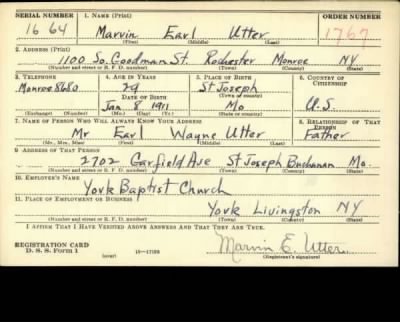 SERIAL NUMBER 1. NAME (Print) ORDER NUMBER
16 64 Marvin Earl Utter 1767
(First) (Middle) (Last)
2. ADDRESS (Print)
1100 So. Goodman St. Rochester Monroe NY
(Number and street or R. F. D. number) (Town) (County) (State)
3. TELEPHONE 4. AGE IN YEARS 5. PLACE OF BIRTH 6. COUNTRY OF CITIZENSHIP
Monroe 8680 29 St Joseph
DATE OF BIRTH (Town or county)
Jan 8 1911 Mo U.S.
(Exchange) (Number) (Mo.) (Day) (Yr.) (State or country)
7. NAME OF PERSON WHO WILL ALWAYS KNOW YOUR ADDRESS 8. RELATIONSHIP OF THAT PERSON
Mr Earl Wayne Utter Father
(Mr., Mrs., Miss) (First) (Middle) (Last)
9. ADDRESS OF THAT PERSON
2702 Garfield Ave St Joseph Buchanan Mo.
(Number and street or R. F. D. number) (Town) (County) (State)
10. EMPLOYER'S NAME
York Baptist Church
11. PLACE OF EMPLOYMENT OR BUSINESS
York Livingston NY
(Number and street or R. F. D. number) (Town) (County) (State)
I AFFIRM THAT I HAVE VERIFIED ABOVE ANSWERS AND THAT THEY ARE TRUE.
REGISTRATION CARD Marvin E. Utter
D. S. S. Form 1 (over) 16—17105 (Registrant's signature)